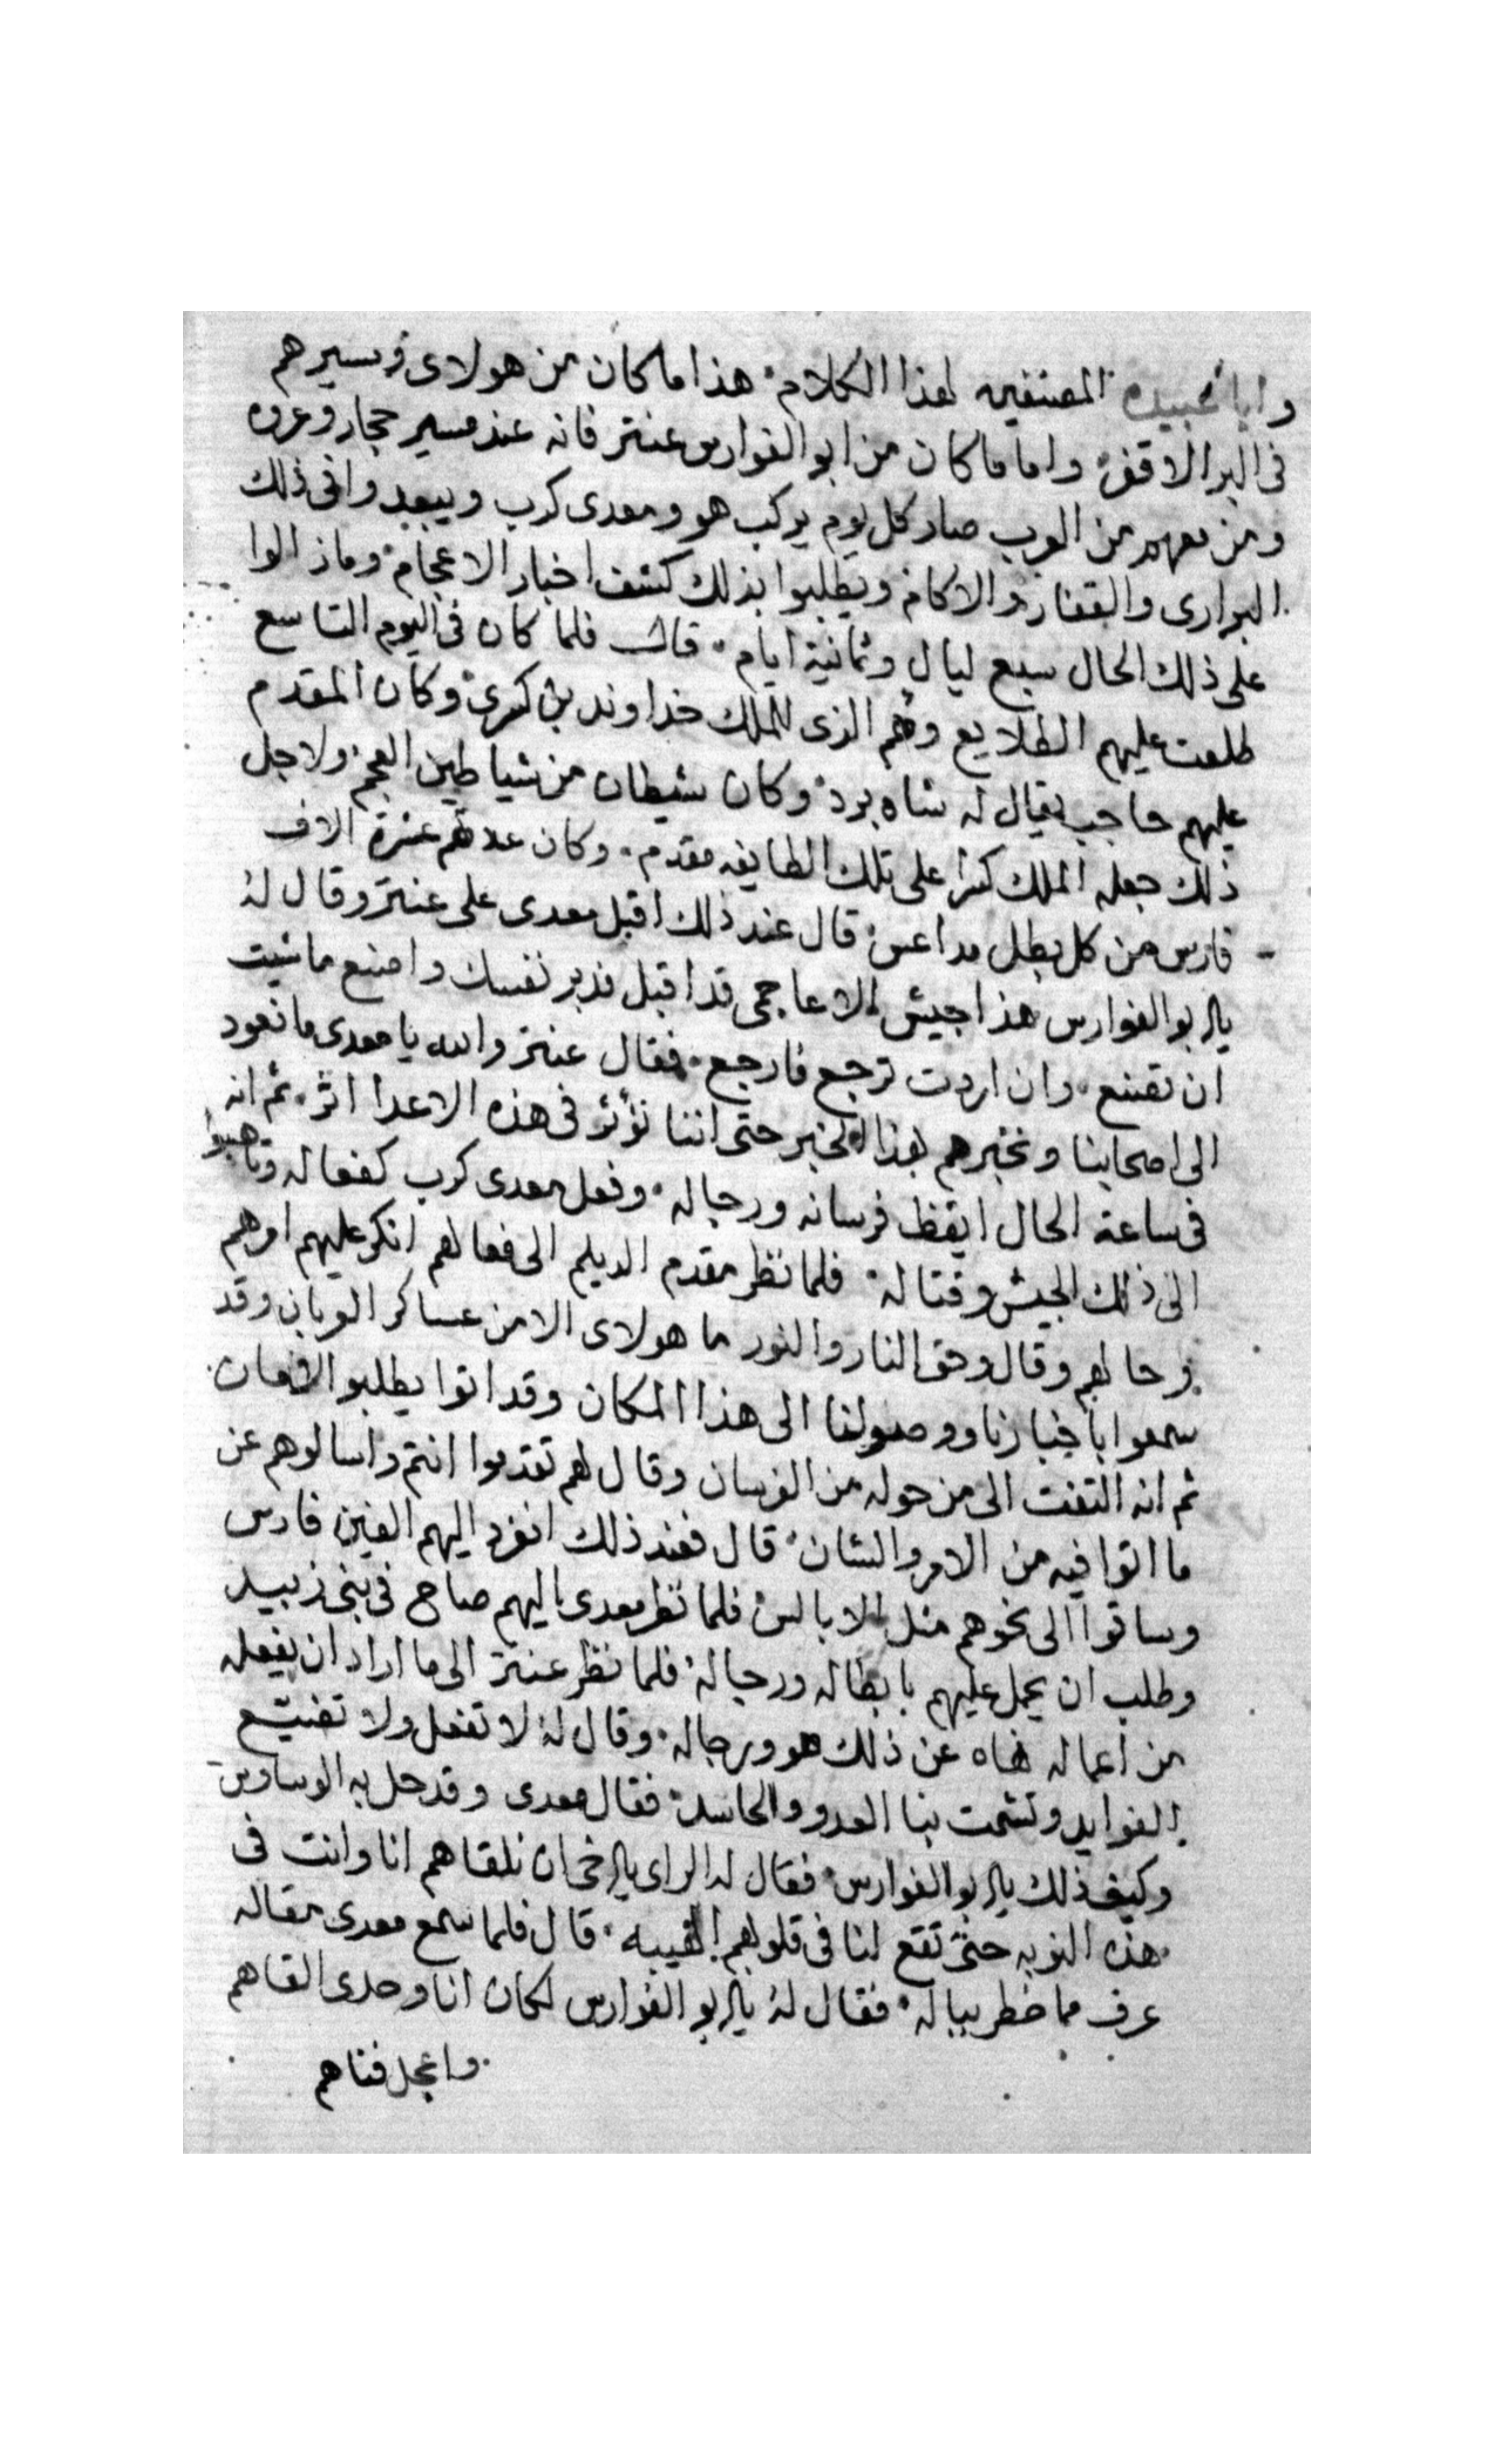 وابا عبيده المصنفين لهذا الكلام هذا ما كان من هولاى ومسيرهم
فى البر الاقفر واما ما كان من ابو الفوارس عنتر فانه عند مسير حجار وعروه
ومن معهم من العرب صار كل يوم يركب هو ومعدى كرب ويبعدوا فى ذلك
البرارى والقفار والاكام ويطلبوا بذلك كشف اخبار الاعجام وما زالوا
على ذلك الحال سبع ليال وثمانية ايام قال فلما كان فى اليوم التاسع
طلعت عليهم الطلايع وهم الذى للملك خداوند بن كسرى وكان المقدم
عليهم حاجب يقال له شاه برد وكان شيطان من شياطين العجم ولاجل
ذلك جعله الملك كسرا على تلك الطايفه مقدم وكان عدتهم عشرة الاف
فارس من كل بطل مداعس قال عند ذلك اقبل معدى على عنتر وقال له
يا ابو الفوارس هذا جيش الاعاجمى قد اقبل فدبر نفسك واصنع ما شيت
ان تصنع وان اردت ترجع فارجع فقال عنتر والله يا معدى ما نعود
الى اصحابنا ونخبرهم بهذا الخبر حتى اننا نؤثر فى هذه الاعدا اثر ثم انه
فى ساعة الحال ايقظ فرسانه ورجاله وفعل معدى كرب كفعاله وتاهبوا
الى ذلك الجيش وقتاله فلما نظر مقدم الديلم الى فعالهم انكر عليهم امرهم
وحالهم وقال وحق النار والنور ما هولاى الا من عساكر العربان وقد
سمعوا باخبارنا ووصولنا الى هذا المكان وقد اتوا يطلبوا الامان
ثم انه التفت الى من حوله من الفرسان وقال لهم تقدموا انتم واسالوهم عن
ما اتوا فيه من الامر والشان قال فعند ذلك انفرد اليهم الفين فارس
وساقوا الى نحوهم مثل الابالس فلما نظر معدى اليهم صاح فى بنى زبيد
وطلب ان يحمل عليهم بابطاله ورجاله فلما نظر عنتر الى ما اراد ان يفعله
من اعماله نهاه عن ذلك هو ورجاله وقال له لا تفعل ولا تضيع
الفوايد وتشمت بنا العدو والحاسد فقال معدى وقد حل به الوساوس
وكيف ذلك يا ابو الفوارس فقال له الراى يا اخى ان نلقاهم انا وانت فى
هذه النوبه حتى تقع لنا فى قلوبهم الهيبه قال فلما سمع معدى مقاله
عرف ما خطر بباله فقال له يا ابو الفوارس لكان انا وحدى القاهم
واعجل فناهم